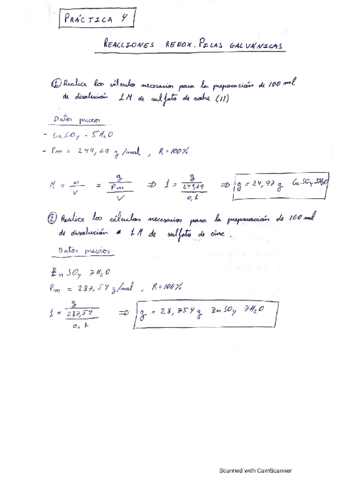 PRÁCTICA 4
REACCIONES REDOX. PILAS GALVÁNICAS
① Realice los cálculos necesarios para la preparación de 100 ml
de disolución 1M de sulfato de cobre (II)
Datos previos
- CuSO4 · 5H2O
- Pm = 249,69 g/mol, R=100%
M = n/V = (g/Pm)/V ⇒ 1 = (g/249,69)/0,1 ⇒ g = 24,97 g CuSO4 5H2O
② Realice los cálculos necesarios para la preparación de 100 ml
de disolución 1M de sulfato de cinc.
Datos previos
ZnSO4 7H2O
Pm = 287,54 g/mol, R=100%
1 = (g/287,54)/0,1 ⇒ g = 28,754 g ZnSO4 7H2O
Scanned with CamScanner